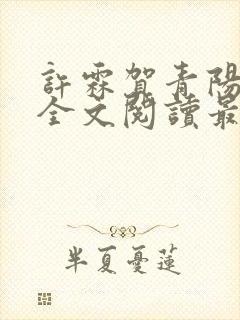 許霖賀青陽
全文閱讀最
半夏憂蓮